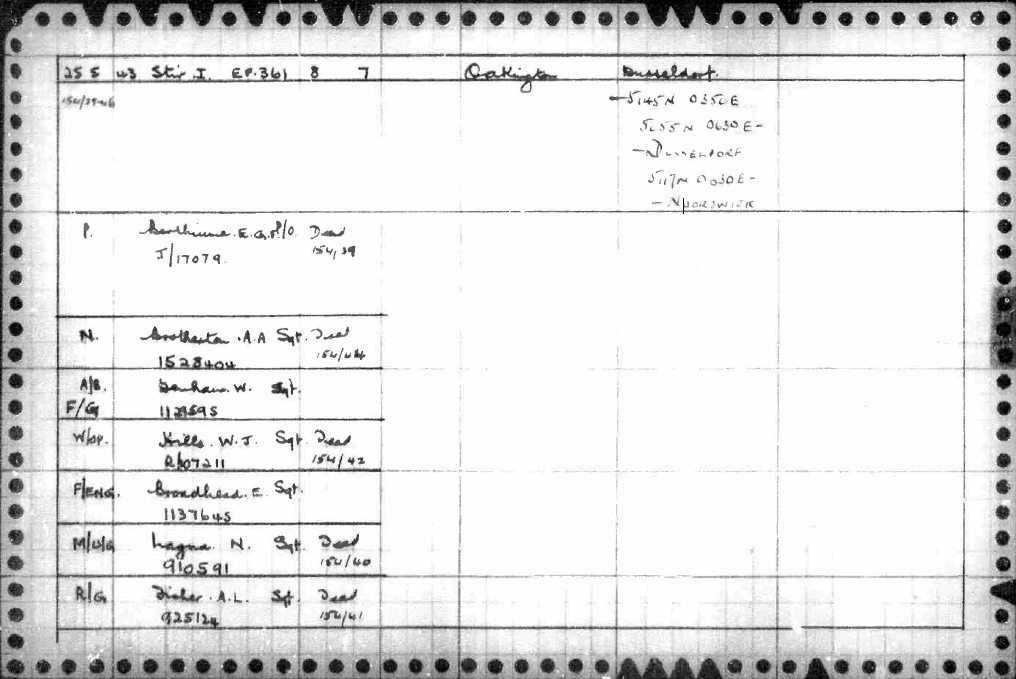 25 5 43 Stir. I. EF.361 8 7 Oakington Dusseldorf.
154/39-46
5145N 0350E
5055N 0630E-
- DUSSELDORF
5117N 0030E-
- NOORDWIJK
P. E.G. P/O. Dead
J/17079. 154/39
N. Brotherton. A.A Sgt. Dead
1528404
A/B. W. Sgt.
F/G
W/OP. Hills. W.J. Sgt. Dead
R/107211 154/42
F/ENG. Broadhead. E. Sgt.
1137645
M/U/G N. Sgt. Dead
910591 154/40
R/G Fisher. A.L. Sgt. Dead
925124 154/41